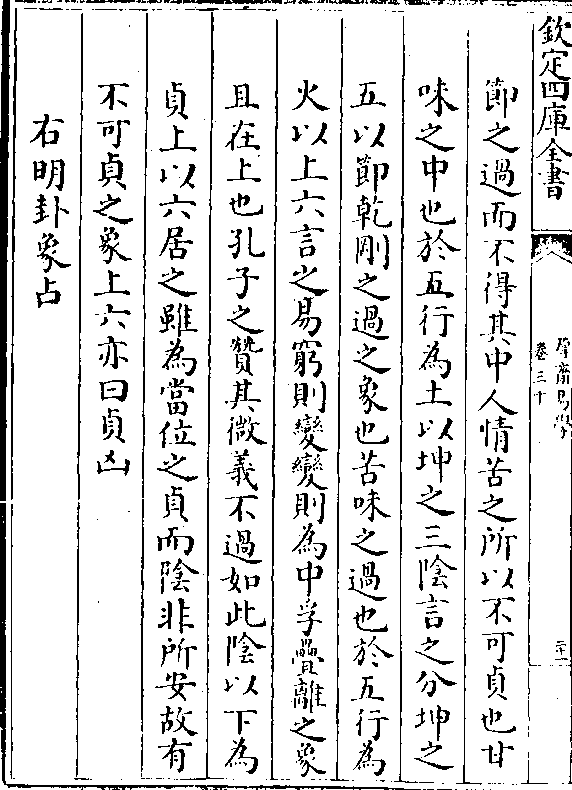 欽定四庫全書
厚齋易學
卷三十
二十一
節之過而不得其中人情苦之所以不可貞也甘
味之中也於五行為土以坤之三陰言之分坤之
五以節乾剛之過之象也苦味之過也於五行為
火以上六言之易窮則變變則為中孚疊離之象
且在上也孔子之贊其微義不過如此陰以下為
貞上以六居之雖為當位之貞而陰非所安故有
不可貞之象上六亦曰貞凶
右明卦象占